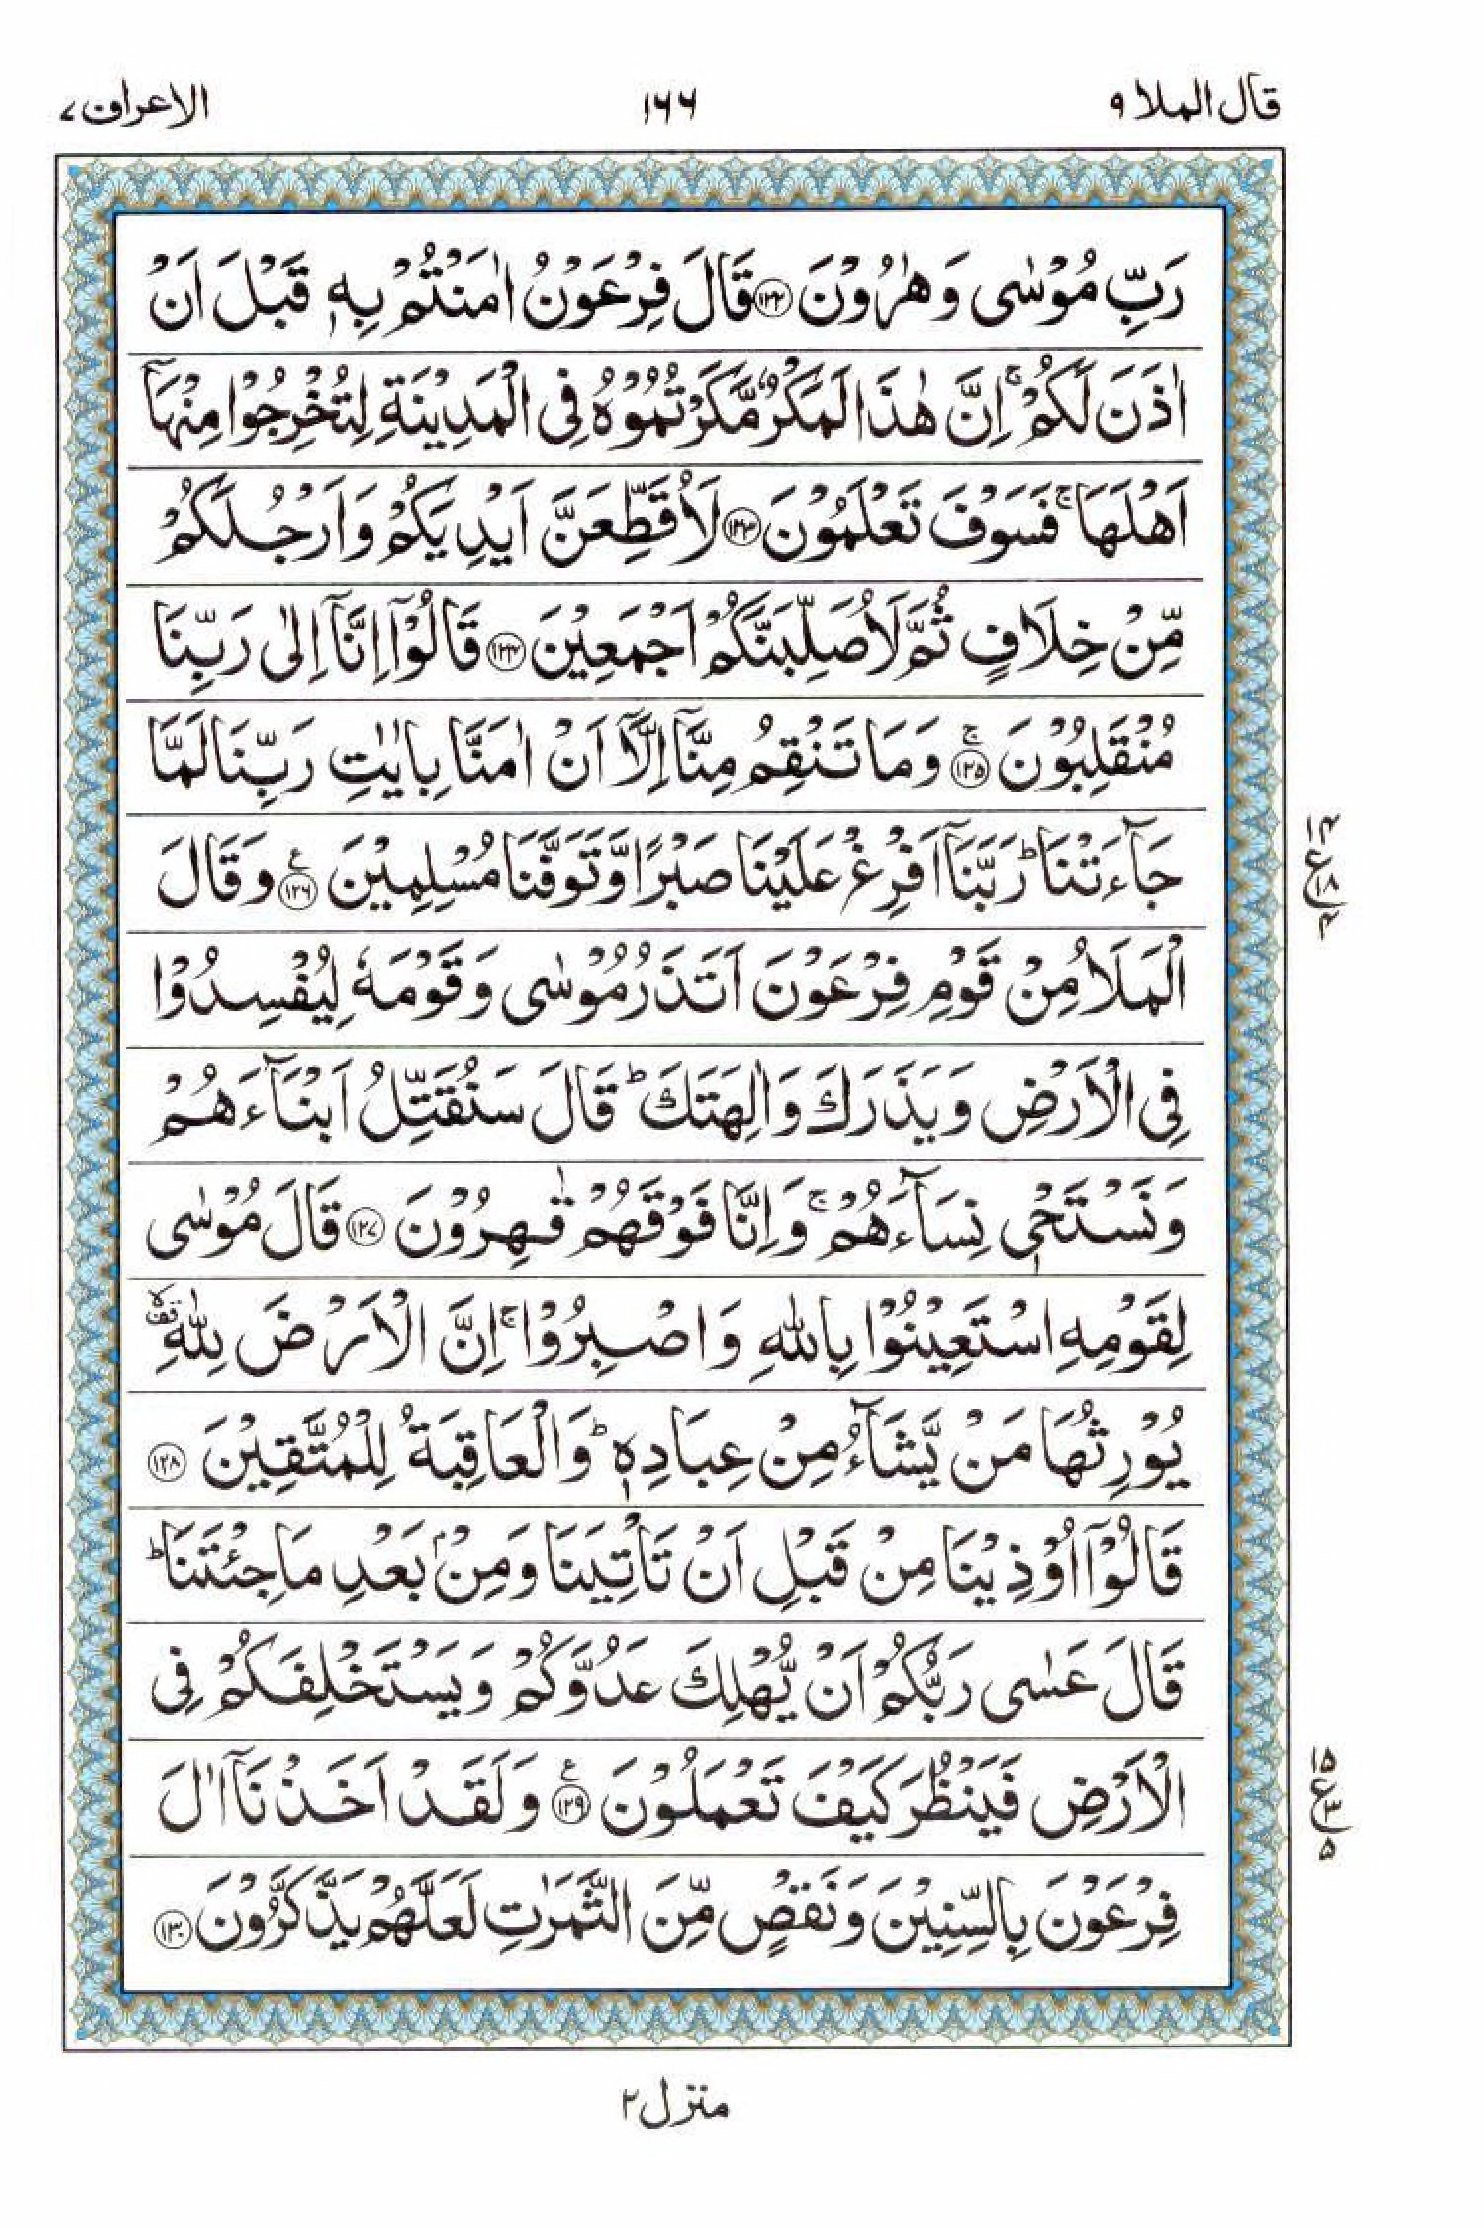 قال الملا ٩ ١٦٦ الاعراف ٧
رَبِّ مُوْسٰى وَهٰرُوْنَ ۝١٢٢ قَالَ فِرْعَوْنُ اٰمَنْتُمْ بِهٖ قَبْلَ اَنْ
اٰذَنَ لَكُمْ ۚ اِنَّ هٰذَا لَمَكْرٌ مَّكَرْتُمُوْهُ فِى الْمَدِيْنَةِ لِتُخْرِجُوْا مِنْهَاۤ
اَهْلَهَا ۚ فَسَوْفَ تَعْلَمُوْنَ ۝١٢٣ لَاُقَطِّعَنَّ اَيْدِيَكُمْ وَاَرْجُلَكُمْ
مِّنْ خِلَافٍ ثُمَّ لَاُصَلِّبَنَّكُمْ اَجْمَعِيْنَ ۝١٢٤ قَالُوْۤا اِنَّاۤ اِلٰى رَبِّنَا
مُنْقَلِبُوْنَ ۚ۝١٢٥ وَمَا تَنْقِمُ مِنَّاۤ اِلَّاۤ اَنْ اٰمَنَّا بِاٰيٰتِ رَبِّنَا لَمَّا
جَآءَتْنَا ؕ رَبَّنَاۤ اَفْرِغْ عَلَيْنَا صَبْرًا وَّتَوَفَّنَا مُسْلِمِيْنَ ۧ۝١٢٦ وَقَالَ
١٤ ع ١٨ ٤
الْمَلَاُ مِنْ قَوْمِ فِرْعَوْنَ اَتَذَرُ مُوْسٰى وَقَوْمَهٗ لِيُفْسِدُوْا
فِى الْاَرْضِ وَيَذَرَكَ وَاٰلِهَتَكَ ؕ قَالَ سَنُقَتِّلُ اَبْنَآءَهُمْ
وَنَسْتَحْىٖ نِسَآءَهُمْ ۚ وَاِنَّا فَوْقَهُمْ قٰهِرُوْنَ ۝١٢٧ قَالَ مُوْسٰى
لِقَوْمِهِ اسْتَعِيْنُوْا بِاللّٰهِ وَاصْبِرُوْا ۚ اِنَّ الْاَرْضَ لِلّٰهِ
يُوْرِثُهَا مَنْ يَّشَآءُ مِنْ عِبَادِهٖ ؕ وَالْعَاقِبَةُ لِلْمُتَّقِيْنَ ۝١٢٨
قَالُوْۤا اُوْذِيْنَا مِنْ قَبْلِ اَنْ تَاْتِيَنَا وَمِنْۢ بَعْدِ مَا جِئْتَنَا ؕ
قَالَ عَسٰى رَبُّكُمْ اَنْ يُّهْلِكَ عَدُوَّكُمْ وَيَسْتَخْلِفَكُمْ فِى
الْاَرْضِ فَيَنْظُرَ كَيْفَ تَعْمَلُوْنَ ۧ۝١٢٩ وَلَقَدْ اَخَذْنَاۤ اٰلَ
١٥ ع ٣ ٥
فِرْعَوْنَ بِالسِّنِيْنَ وَنَقْصٍ مِّنَ الثَّمَرٰتِ لَعَلَّهُمْ يَذَّكَّرُوْنَ ۝١٣٠
منزل ٢